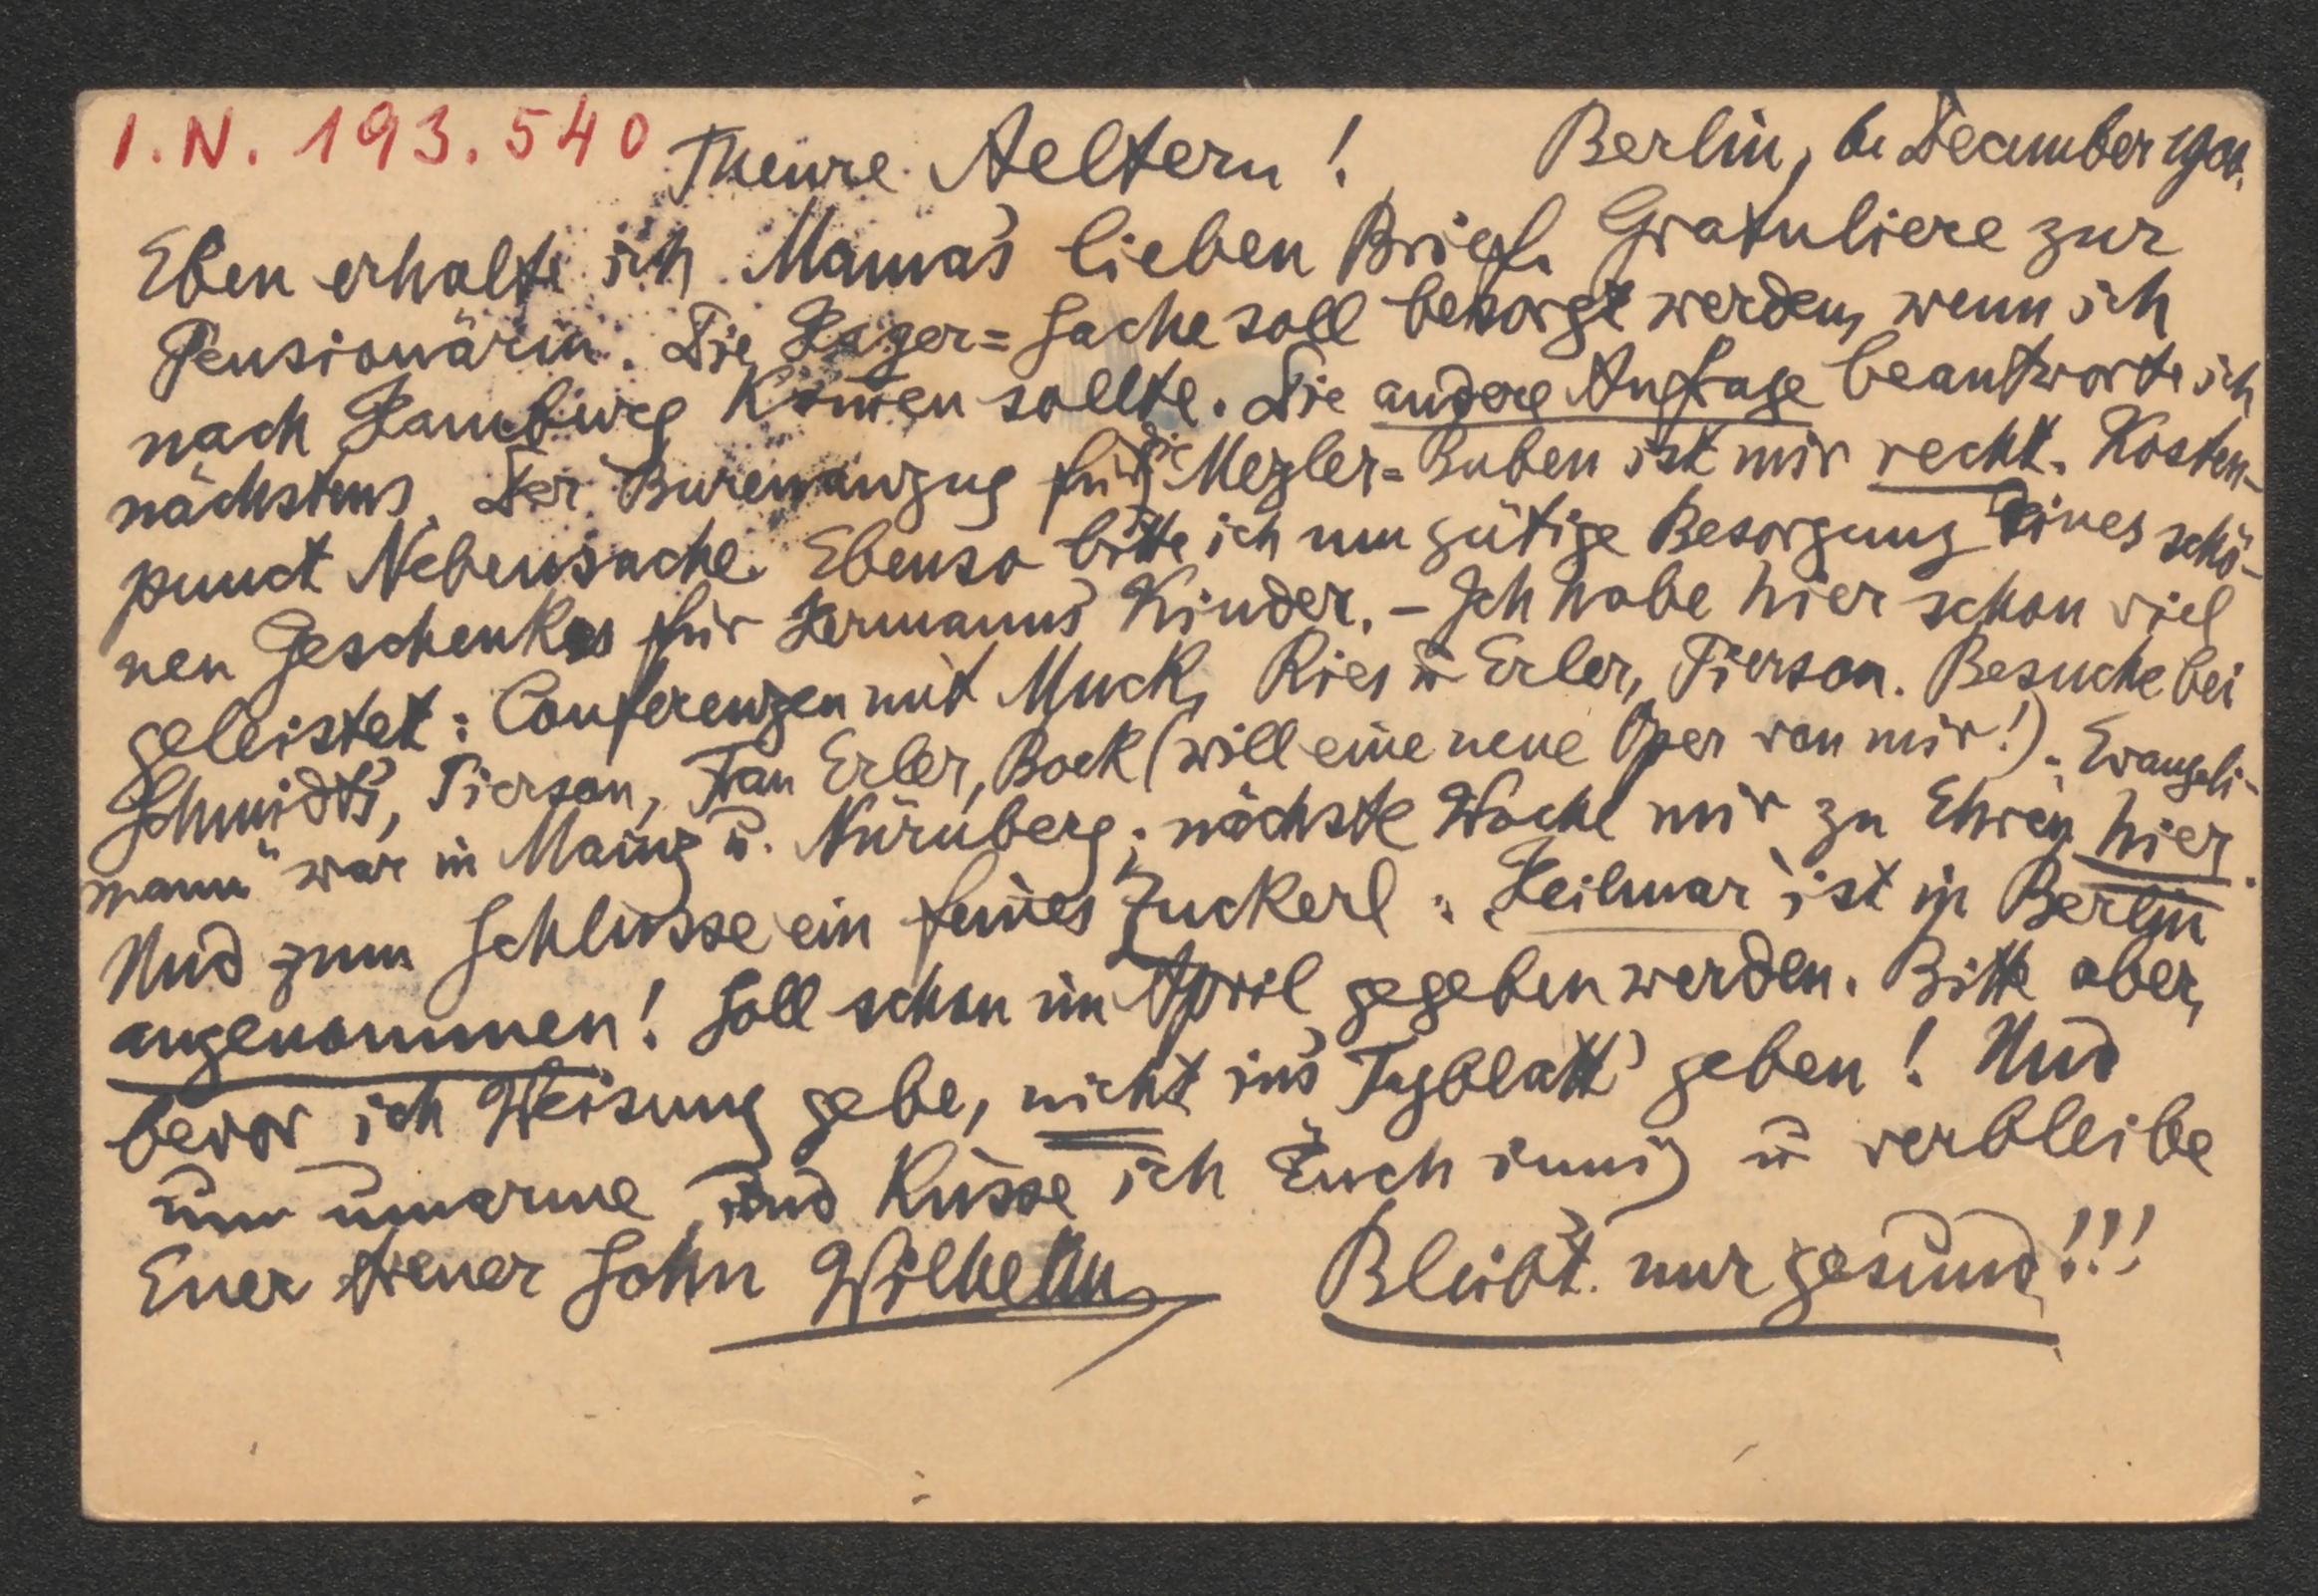 I.N. 193.540
Theure Aeltern! Berlin, 6. December 1900.
Eben erhalte ich Mama's lieben Brief. Gratuliere zur
Pensionärin. Die Hager=Sache soll besorgt werden, wenn ich
nach Hamburg kom̄en sollte. Die andere Anfrage beantworte ich
nächstens. Der Burenanzug für die Mezler=Buben ist mir recht. Kosten-
punct Nebensache. Ebenso bitte ich um gütige Besorgung eines schö-
nen Geschenkes für Hermann's Kinder. – Ich habe hier schon viel
geleistet: Conferenzen mit Muck, Ries u Erler, Pierson. Besuche bei
Schmidt's, Pierson, Frau Erler, Bock (will eine neue Oper von mir!). „Evangeli-
mann" war in Mainz u. Nürnberg; nächste Woche mir zu Ehren hier.
Und zum Schlusse ein feines Zuckerl: „Heilmar" ist in Berlin
angenommen! Soll schon im April gegeben werden. Bitte aber,
bevor ich Weisung gebe, nicht in's Tagblatt geben! Und
nun umarme und küsse ich Euch innig u verbleibe
Euer treuer Sohn Wilhelm Bleibt nur gesund!!!